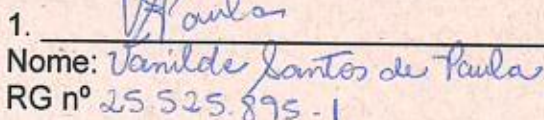 1. VPaula
Nome: Vanilde Santos de Paula
RG nº 25.525.895-1